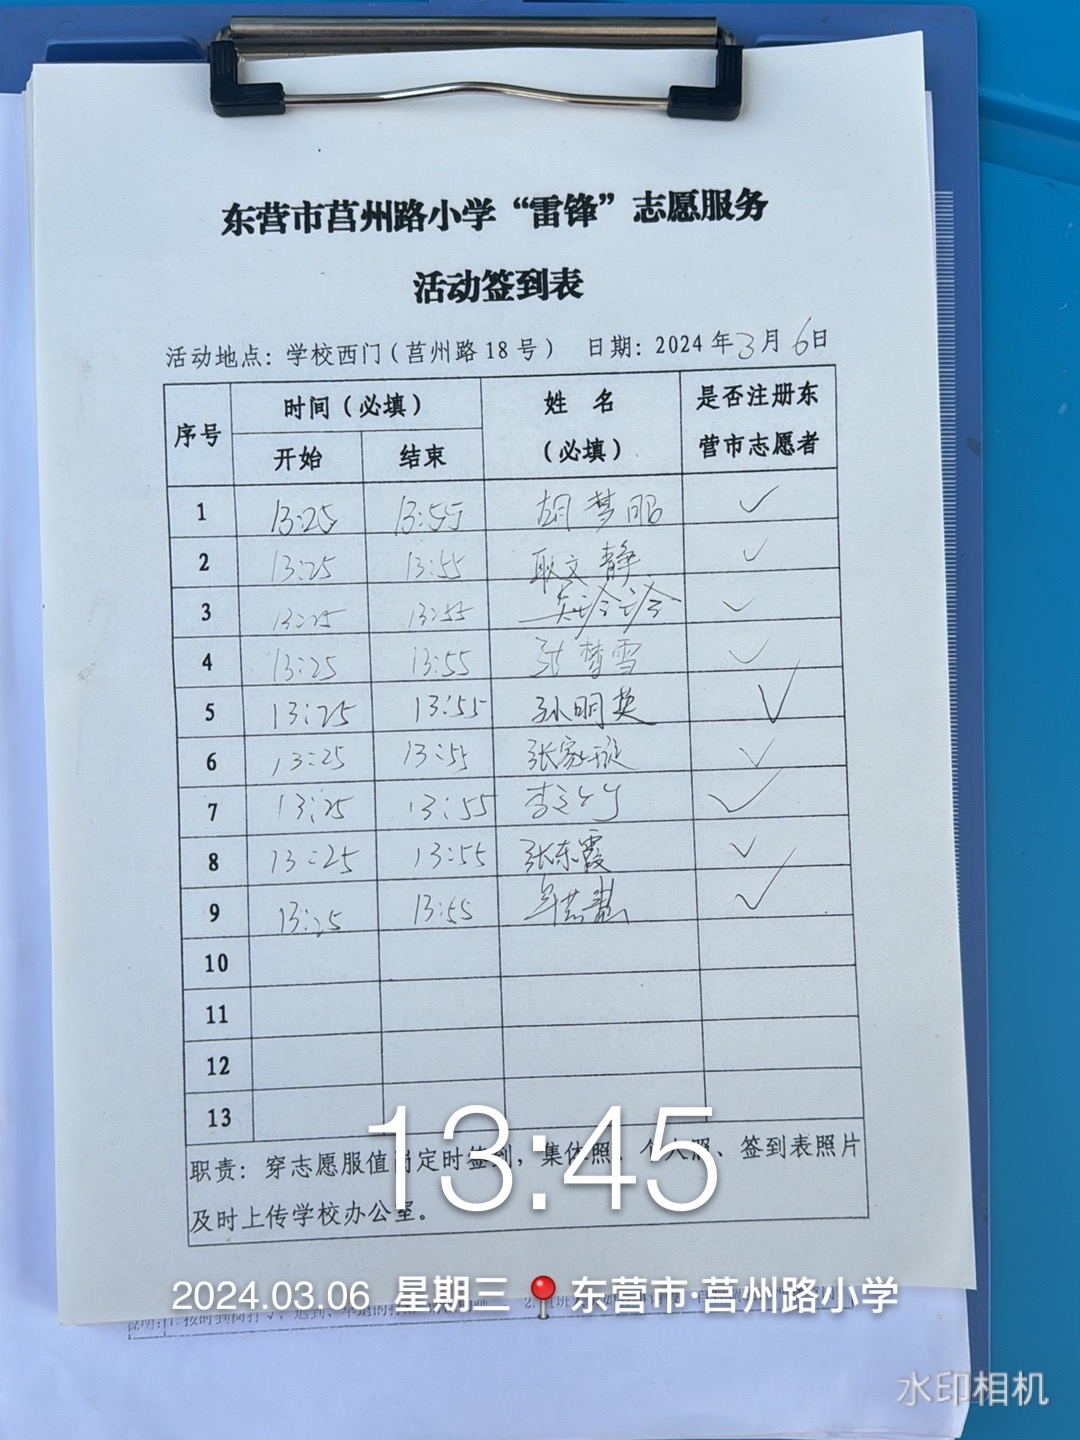 东营市莒州路小学“雷锋”志愿服务
活动签到表
活动地点：学校西门（莒州路18号） 日期：2024年3月6日
序号 时间（必填） 姓 名（必填） 是否注册东营市志愿者
开始 结束
1 13:25 13:55 胡梦 ✓
2 13:25 13:55 耿文静 ✓
3 13:25 13:55 ✓
4 13:25 13:55 张梦雪 ✓
5 13:25 13:55 孙明英 ✓
6 13:25 13:55 张家璇 ✓
7 13:25 13:55 李 ✓
8 13:25 13:55 张东霞 ✓
9 13:25 13:55 ✓
10
11
12
13
职责：穿志愿服值岗定时签到，集体照、个人照、签到表照片
及时上传学校办公室。
13:45
2024.03.06 星期三 东营市·莒州路小学
水印相机